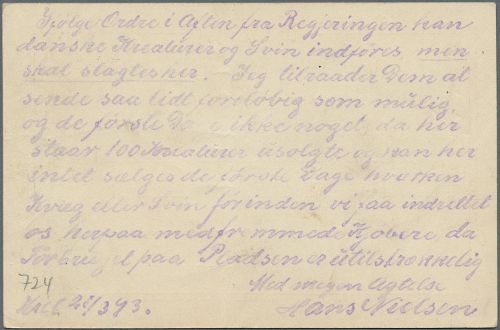 Ifølge Ordre i Aften fra Regjeringen kan
danske Kreaturer og Svin indføres men
skal slagtes her. Jeg tilraader Dem at
sende saa lidt foreløbig som mulig
og de første Da e ikke noget, da her
staar 100 Kreaturer usolgte og kan her
intet sælges de første Dage hverken
Kvæg eller Svin førinden vi faa indrettet
os herpaa med fremmede Kjøbere, da
paa Pladsen er utilstrækkelig
Med megen Agtelse
724
Kiel 21/3 93.
Hans Nielsen